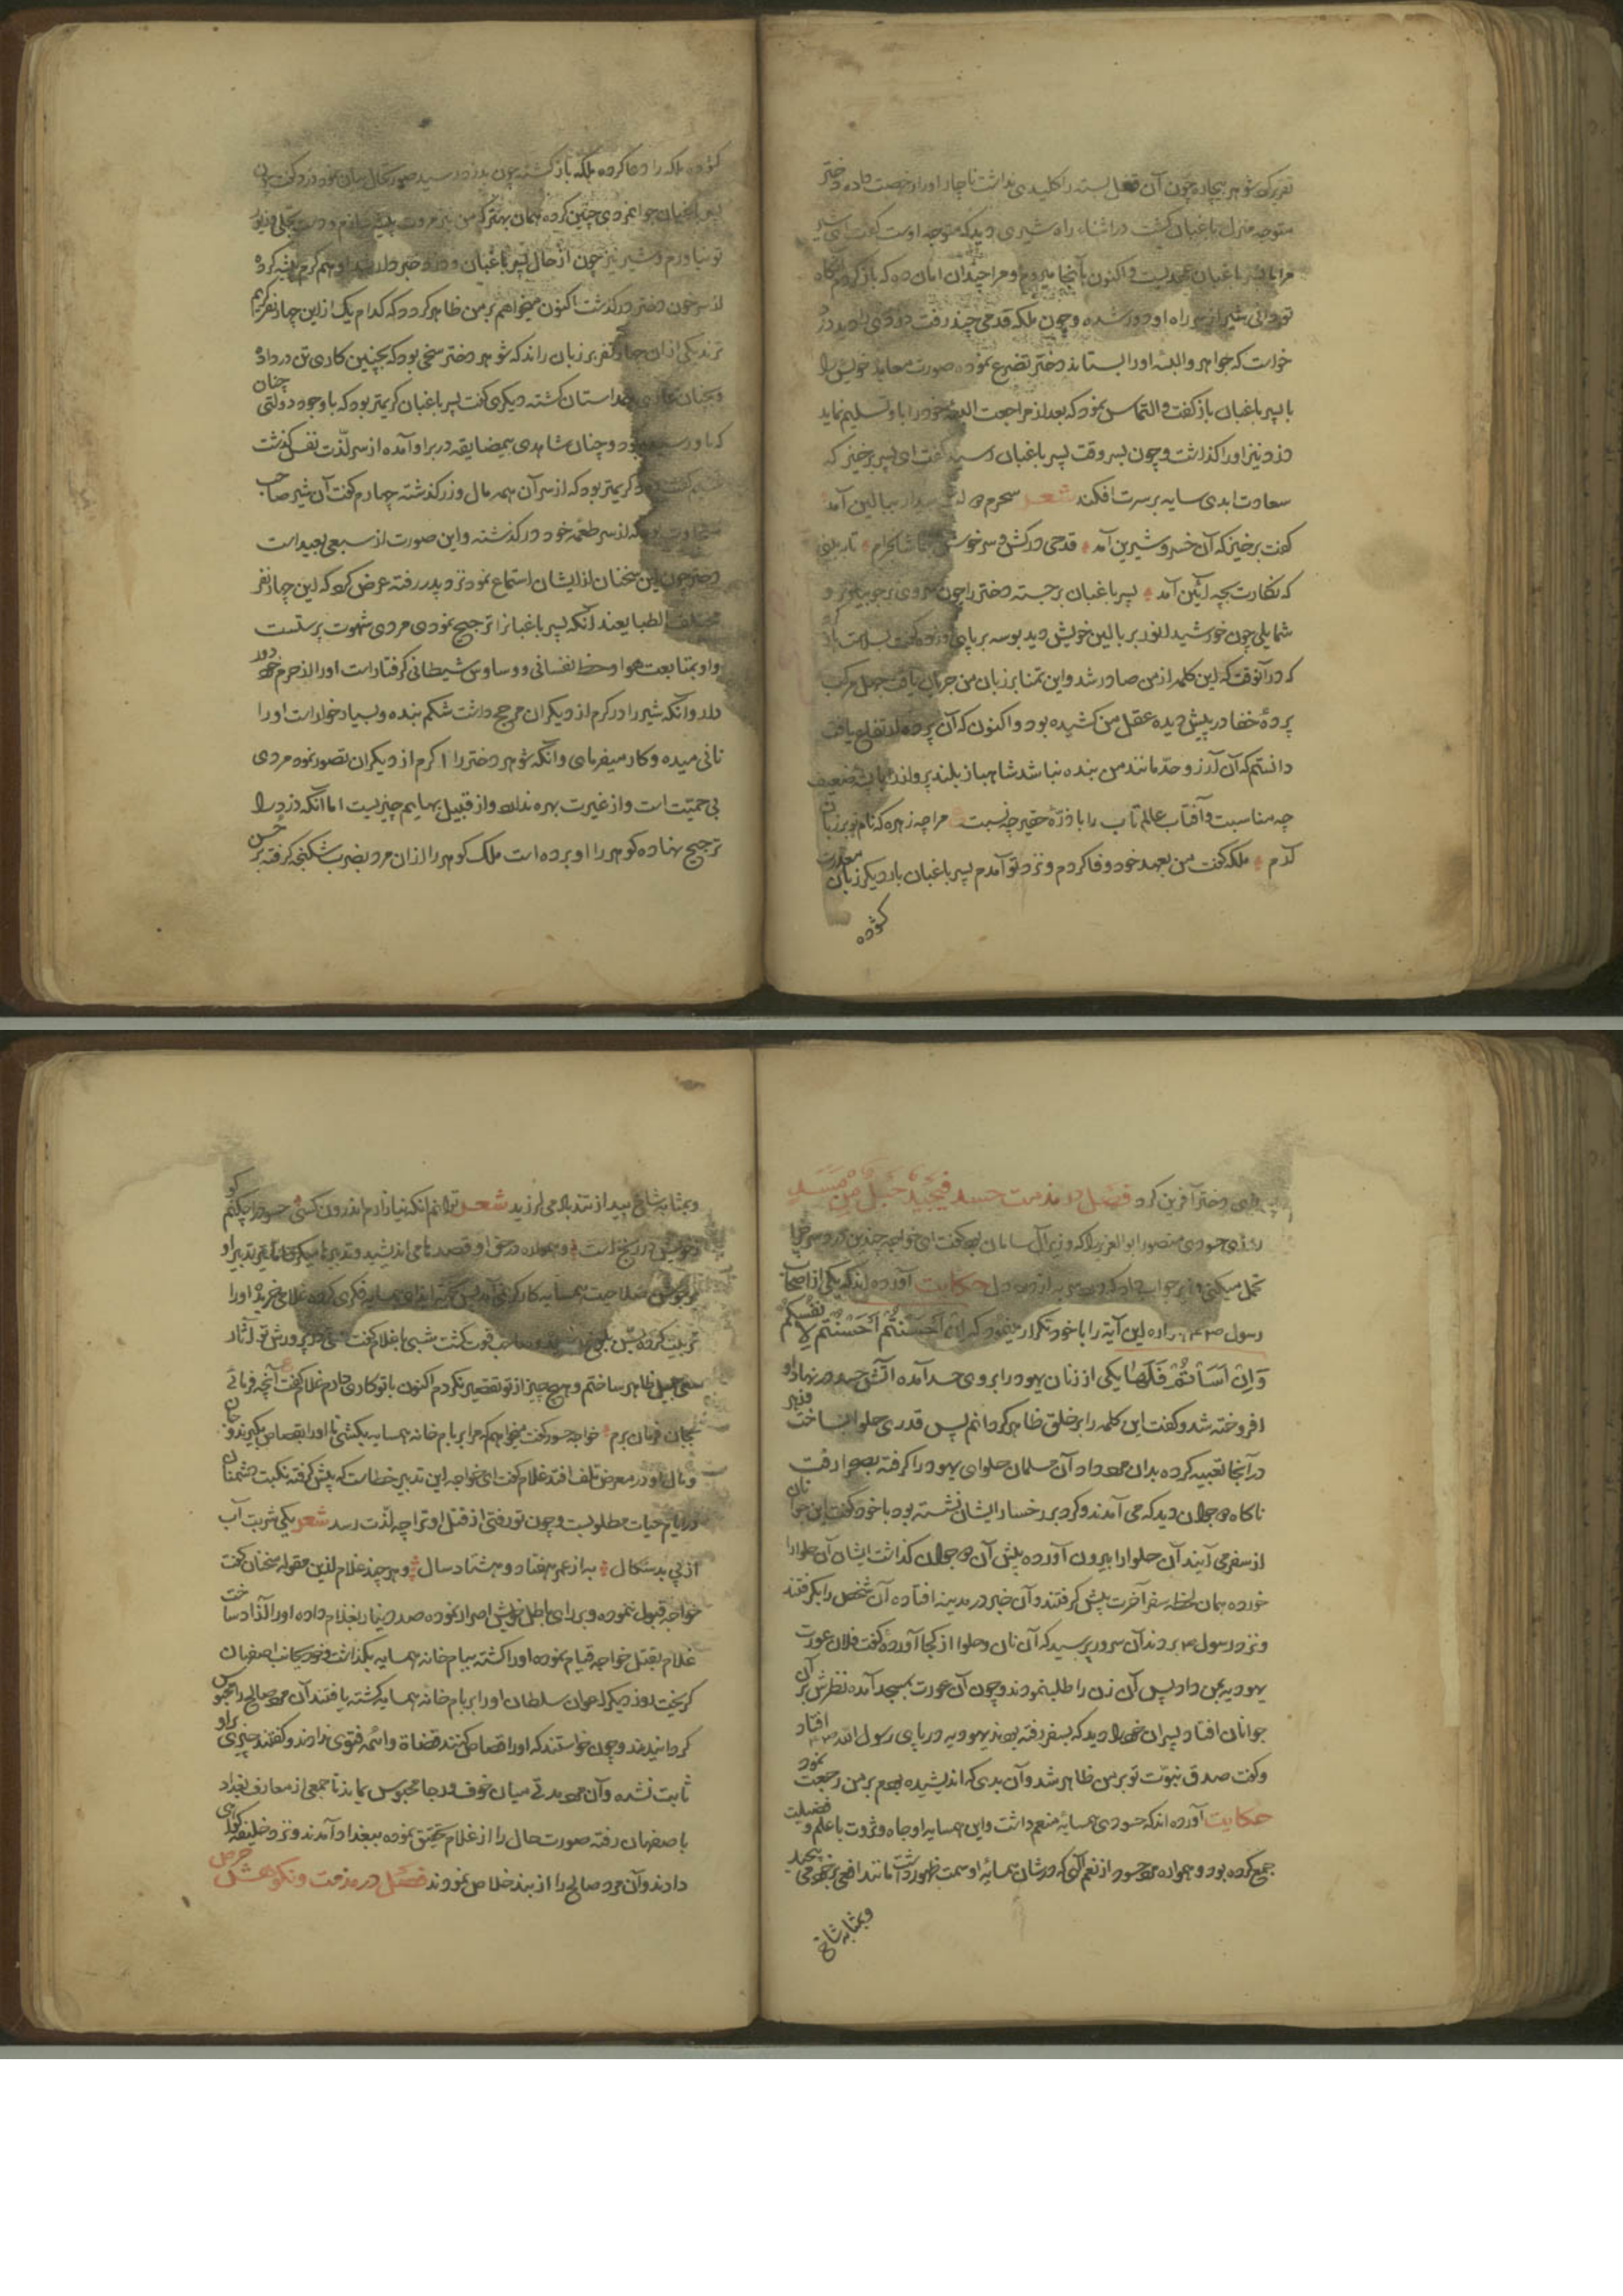 تقریر کرد شوهر بیچاره چون آن قفل بسته را کلیدی نداشت ناچار او را رخصت داده دختر
متوجه منزل باغبان گشت در اثناء راه شیری دید که متوجه اوست گفت ای شیر
مرا با پسر باغبان عهدیست و اکنون بآنجا میروم و مرا چندان امان ده که باز گردم آنگاه
تو دانی شیر از سر راه او دور شده و چون ملکه قدمی چند رفت دزدی را دید دزد
خواست که جواهر و البسه او را بستاند دختر تضرع نموده صورت معاهده خویش را
با پسر باغبان باز گفت و التماس نمود که بعد از مراجعت البسه خود را باو تسلیم نماید
دزد نیز او را گذاشت و چون بسر وقت پسر باغبان رسید گفت ای پسر برخیز که
سعادت ابدی سایه بر سرت افکند شعر سحرم دولت بیدار ببالین آمد
گفت برخیز که آن خسرو شیرین آمد قدحی درکش و سرخوش بتماشا بخرام تا ببینی
که نگارت بچه آیین آمد پسر باغبان برجسته دختر را چون سروی بر جویبار و
شمایلی چون خورشید انور بر بالین خویش دید بوسه بر پای او زد و گفت
که در آنوقت که این کلمه از من صادر شد و این تمنا بر زبان من جریان یافت جهل مرکب
پردهٔ خفا در پیش دیده عقل من کشیده بود و اکنون که آن پرده ارتفاع یافت
دانستم که آن آرزو حدّ مانند من بنده نباشد شاهباز بلند پرواز را با پشه ضعیف
چه مناسبت و آفتاب عالم تاب را با ذرّهٔ حقیر چه نسبت ع مرا چه زهره که نام تو بر زبان
آرم ملکه گفت من بعهد خود وفا کردم و نزد تو آمدم پسر باغبان بار دیگر زبان معذرت
گشوده
گشوده ملکه را دعا کرده ملکه باز گشته چون بدزد رسید صورتحال بیان نمود دزد گفت چون
پسر باغبان جوانمردی چنین کرده همان بهتر که من نیز مروت پیشه سازم و دست بحلی و زیور
تو نیاورم و شیر نیز چون از حال پسر باغبان و دزد خبردار شد او هم کرم پیشه کرده
از سر خون دختر درگذشت اکنون میخواهم بر من ظاهر گردد که کدام یک از این چهار نفر کریم
ترند یکی از آن چهار نفر بر زبان راند که شوهر دختر سخی بود که بچنین کاری تن در داد
و بچنان همداستان گشته دیگری گفت پسر باغبان کریمتر بود که با وجود چنان دولتی
که باو رسیده بود و چنان شاهدی بیمضایقه در بر او آمده از سر لذّت نفس گذشت
سیم گفت دزد کریمتر بود که از سر آن همه مال و زر گذشته چهارم گفت آن شیر صاحب
سخاوت بود که از سر طعمه خود درگذشته و این صورت از سبعی بعید است
دختر چون این سخنان از ایشان استماع نمود نزد پدر رفته عرض کرد که این چهار نفر
مختلف الطبایعند آنکه پسر باغبانرا ترجیح نمودی مردی شهوت پرستست
و او بمتابعت هوا و حظ نفسانی و وساوس شیطانی گرفتار است او را از حرم خود دور
دار و آنکه شیر را در کرم از دیگران مرجح داشت شکم بنده و بسیار خوار است او را
نانی میده و کار میفرمای و آنکه شوهر دختر را اکرم از دیگران تصور نمود مردی
بی حمیّت است و از غیرت بهره ندارد و از قبیل بهایم چیزیست اما آنکه دزد را
ترجیح نهاده گوهر را او برده است ملک گوهر را از آن مرد بضرب شکنجه گرفته بر حسن
رای دختر آفرین کرد فصل در مذمت حسد فی جیدها حبل من مسد
منصور ابو العزیز را که وزیر آل سامان بود گفت ای خواجه چندین درد سر چرا
تحمل میکنی حکایت آورده اند که یکی از اصحاب
رسول این آیه را با خود تکرار مینمود که ان احسنتم احسنتم لانفسکم
وان اسأتم فلها یکی از زنان یهود را بر وی حسد آمده آتش حسد در نهاد او
افروخته شد و گفت این کلمه را بر خلق ظاهر گردانم پس قدری حلوا ساخت زهر
در آنجا تعبیه کرده بدان مرد داد آن مسلمان حلوای یهود را گرفته بصحرا رفت
ناگاه دو جوان دید که می آمدند و گرد بر رخسار ایشان نشسته بود با خود گفت این جوانان
از سفر می آیند آن حلوا را بیرون آورده پیش آن دو جوان گذاشت ایشان آن حلوا را
خورده همان لحظه سفر آخرت پیش گرفتند و آن خبر در مدینه افتاده آن شخص را بگرفتند
و نزد رسول بردند آن سرور پرسید که آن نان و حلوا از کجا آوردهٔ گفت فلان عورت
یهودیه بمن داد پس آن زن را طلب نمودند و چون آن عورت بمسجد آمده نظرش بر آن
جوانان افتاد پسران خود را دید که بسفر رفته بودند یهودیه در پای رسول الله افتاد
و گفت صدق نبوّت تو بر من ظاهر شد و آن بدی که اندیشیده بودم بر من رجعت نمود
حکایت آورده اند که حسودی همسایهٔ منعم داشت و این همسایه او جاه و ثروت با علم و فضیلت
جمع کرده بود و همواره مرد حسود از نعم الهی که در شان همسایه او سمت ظهور داشت مانند افعی بر خود می پیچید
و بمثابه شاخ
و بمثابه شاخ بید از تند باد می لرزید شعر توانم آنکه نیازارم اندرون کسی حسود را چکنم کو
ز خود برنج درست و همواره در حق او قصدها می اندیشید و تدبیرها میکرد تدبیر او
غلامی خرید و او را
تربیت کرده شبی با غلام گفت پرورش تو آثار
سعی جمیل ظاهر ساختم و هیچ چیز از تو تقصیر نکردم اکنون با تو کاری دارم غلام گفت ع آنچه فرمائی
بجان فرمان برم خواجه حسود گفت میخواهم که مرا بر بام خانه همسایه بکشی تا او را بقصاص بگیرند و جان
و مال او در معرض تلف افتد غلام گفت ای خواجه این تدبیر خطاست که پیش گرفته نکبت دشمنان
در ایام حیات مطلوبست و چون تو رفتی از قتل او ترا چه لذّت رسد شعر یکی شربت آب
از پی بد سگال به از عمر هفتاد و هشتاد سال و هر چند غلام ازین مقوله سخنان گفت
خواجه قبول ننموده و بر رای باطل خویش اصرار نموده صد دینار بغلام داده او را آزاد ساخت
غلام بقتل خواجه قیام نموده او را کشته ببام خانه همسایه بگذاشت و خود بجانب اصفهان
گریخت روز دیگر اعوان سلطان او را بر بام خانه همسایه کشته یافتند آن مرد صالح را محبوس
گردانیدند و چون خواستند که او را قصاص کنند قضاة و ائمه فتوی ندادند و گفتند چیزی بر او
ثابت نشده و آن مرد مدتی میان خوف و رجا محبوس بماند تا جمعی از معارف بغداد
باصفهان رفته صورت حال را از غلام تحقیق نموده ببغداد آمدند و نزد خلیفه گواهی
دادند و آن مرد صالح را از بند خلاص نمودند فصل در مذمت و نکوهش حرص